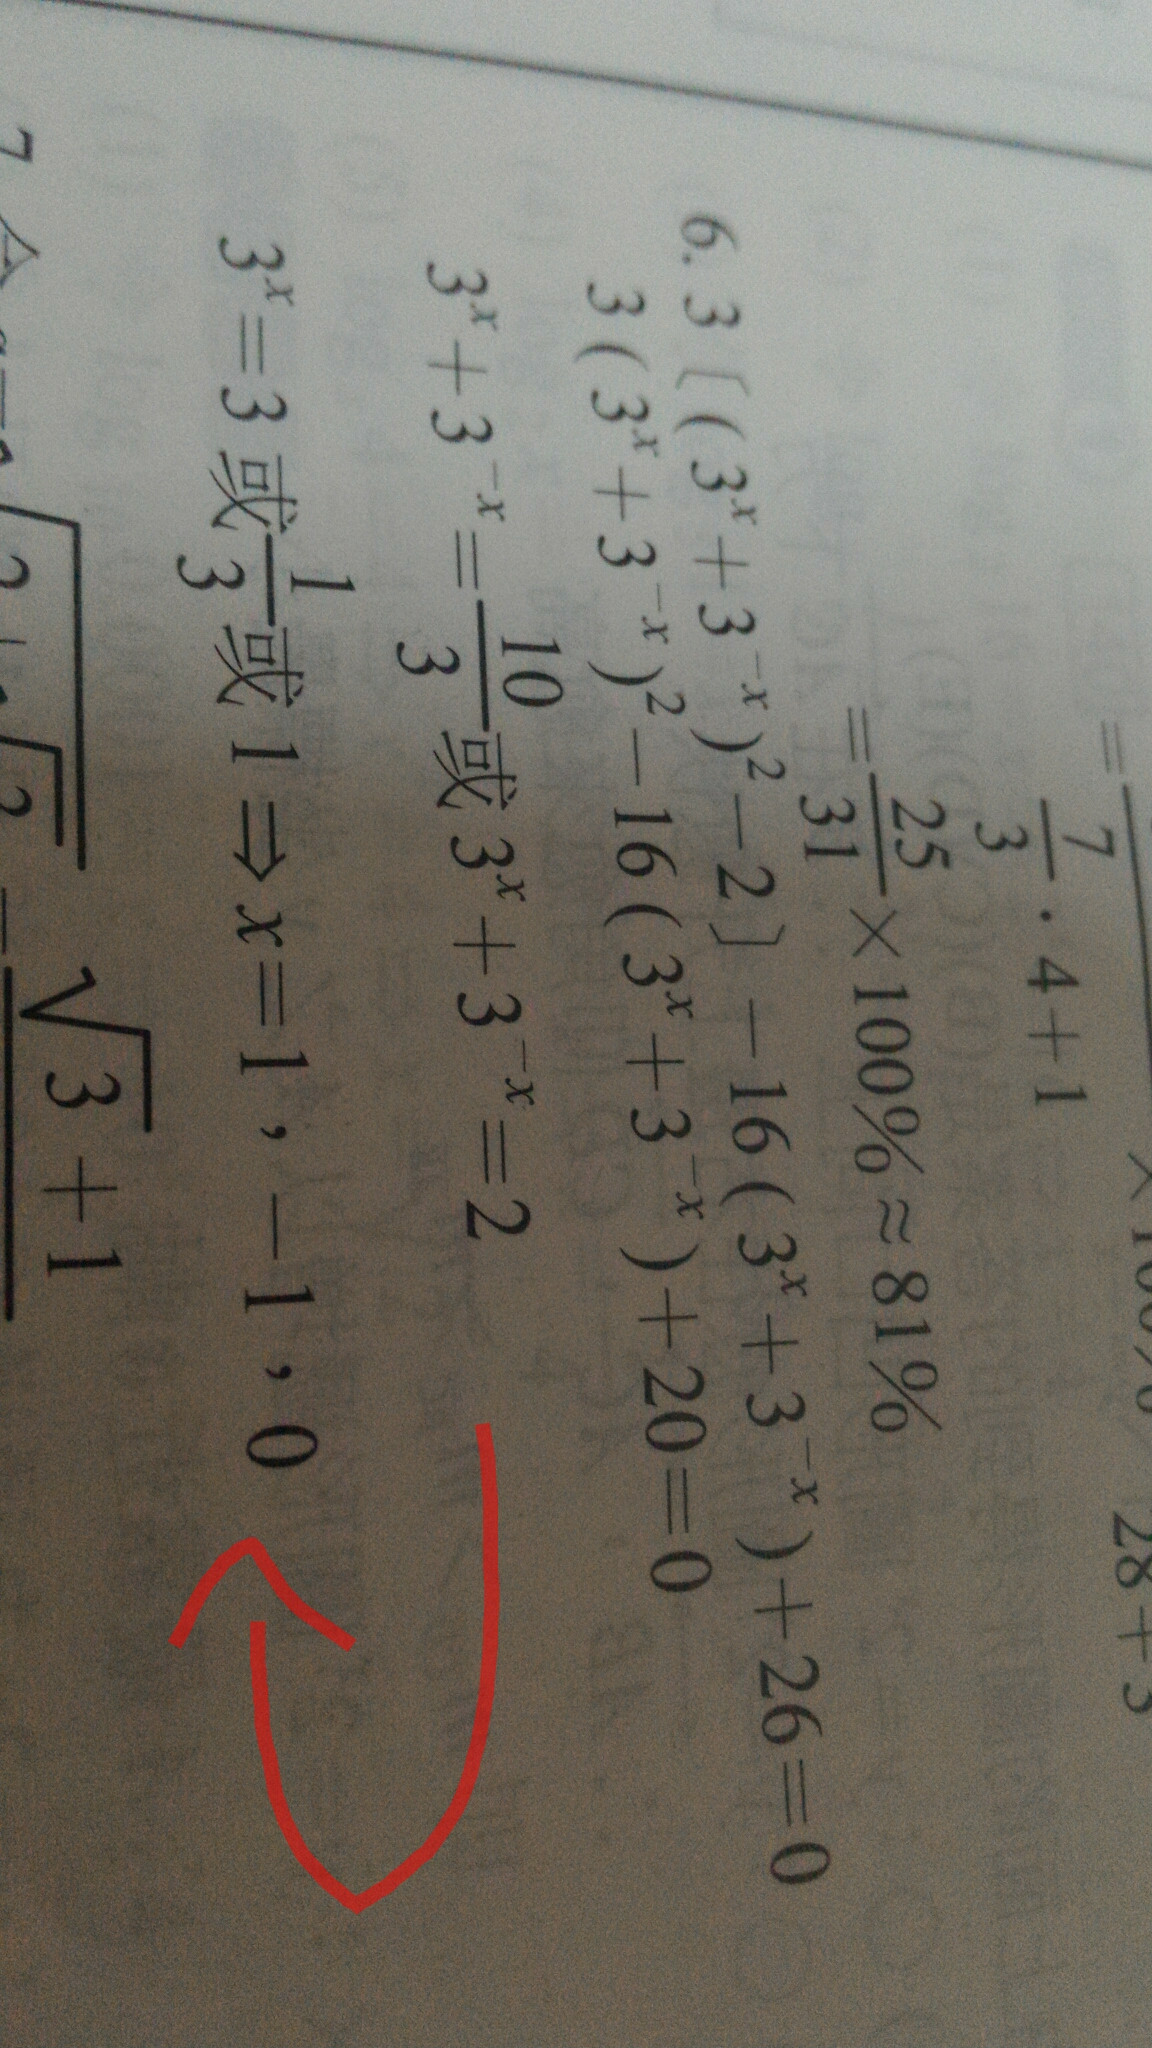 7/3 · 4 + 1
= 25/31 × 100% ≈ 81%
6. 3〔(3ˣ + 3⁻ˣ)² − 2〕− 16(3ˣ + 3⁻ˣ) + 26 = 0
3(3ˣ + 3⁻ˣ)² − 16(3ˣ + 3⁻ˣ) + 20 = 0
3ˣ + 3⁻ˣ = 10/3 或 3ˣ + 3⁻ˣ = 2
3ˣ = 3 或 1/3 或 1 ⇒ x = 1，−1，0
√3 + 1